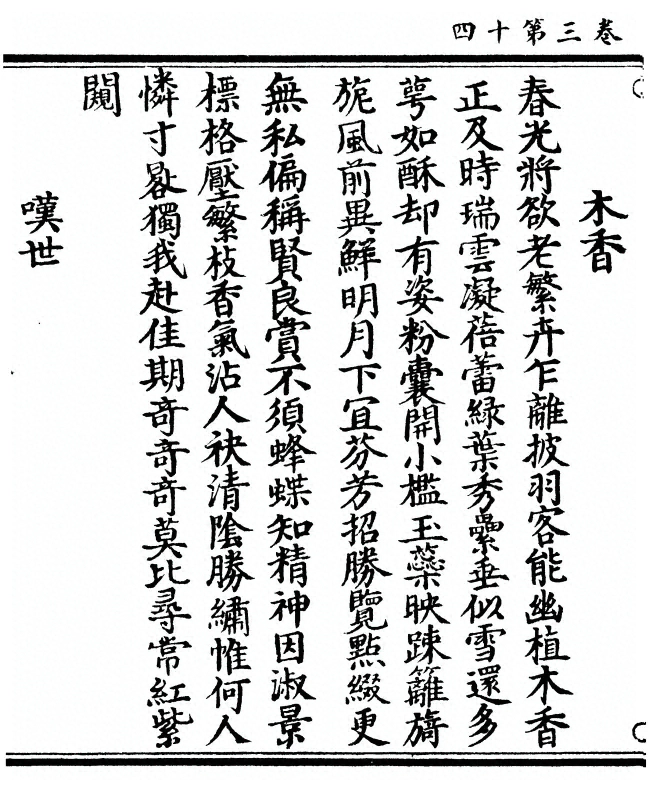 卷三第十四
木香
春光將欲老繁卉乍離披羽客能幽植木香
正及時瑞雲凝蓓蕾緑葉秀纍垂似雪還多
萼如酥却有姿粉囊開小檻玉蘂映踈籬旖
旎風前異鮮明月下宜芬芳招勝覽點綴更
無私偏稱賢良賞不須蜂蝶知精神因淑景
標格壓繁枝香氣沾人袂清陰勝繡帷何人
憐寸晷獨我赴佳期奇奇奇莫比尋常紅紫
闚
嘆世